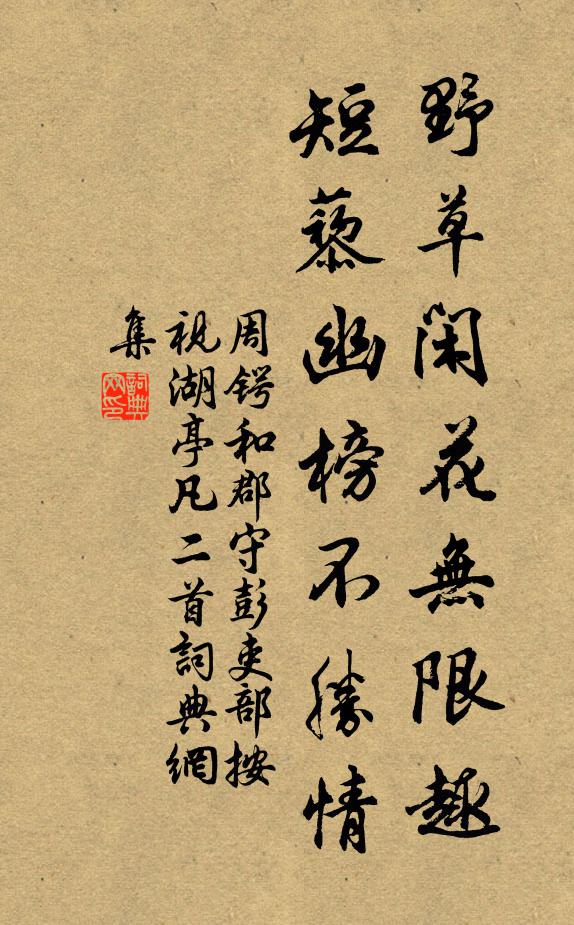 野草閑花無限趣
短藜幽榜不勝情
周锷和郡守彭吏部按
視湖亭凡二首詞典網
集
詞典
网印